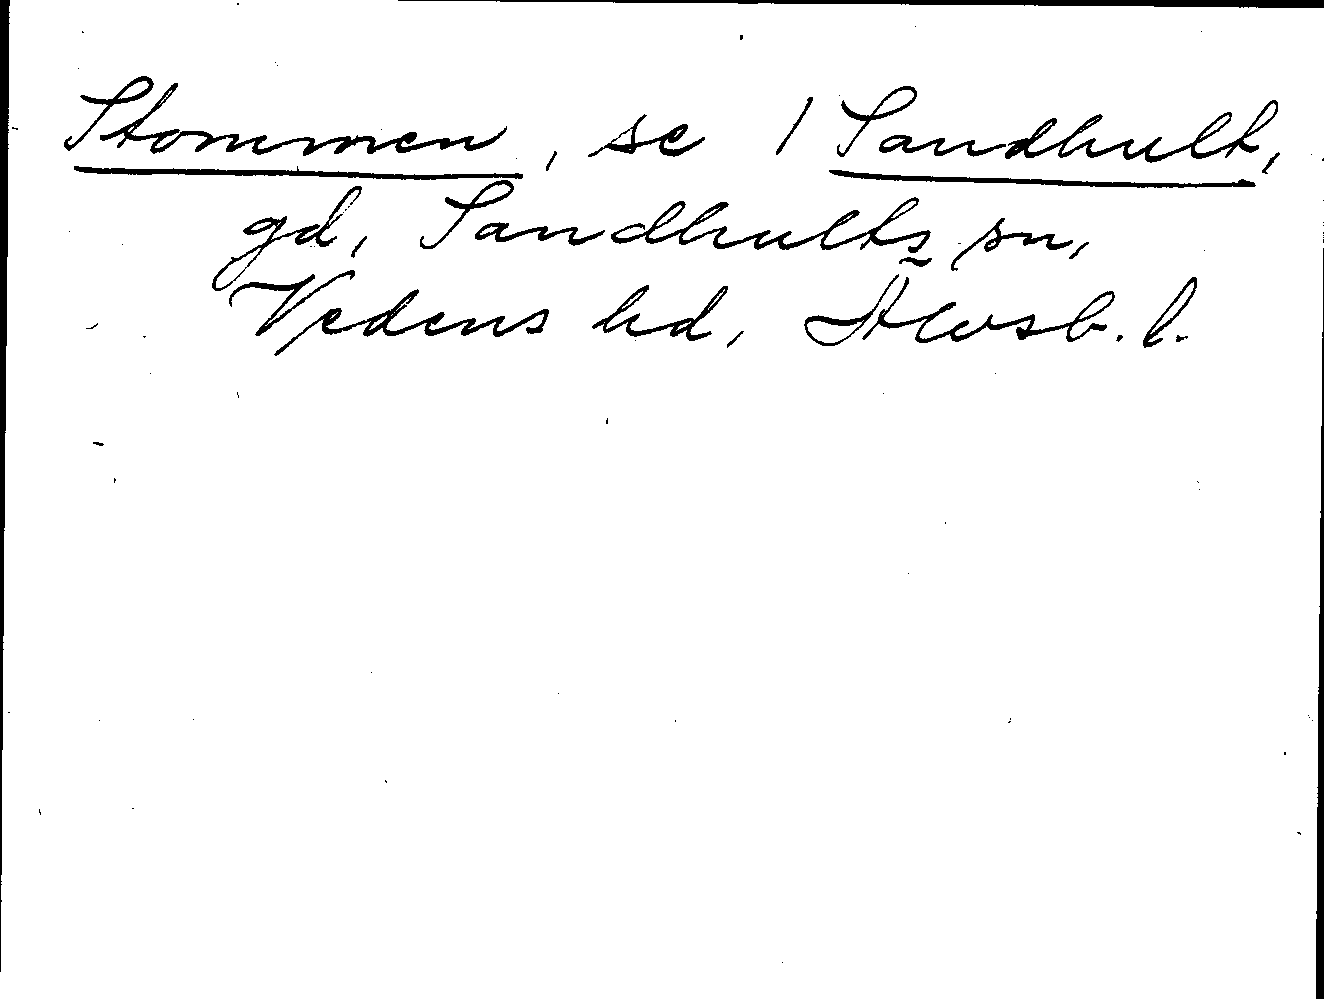 Stommen, se 1 Sandhult,
gd, Sandhults sn,
Vedens hd, Älvsb. l.